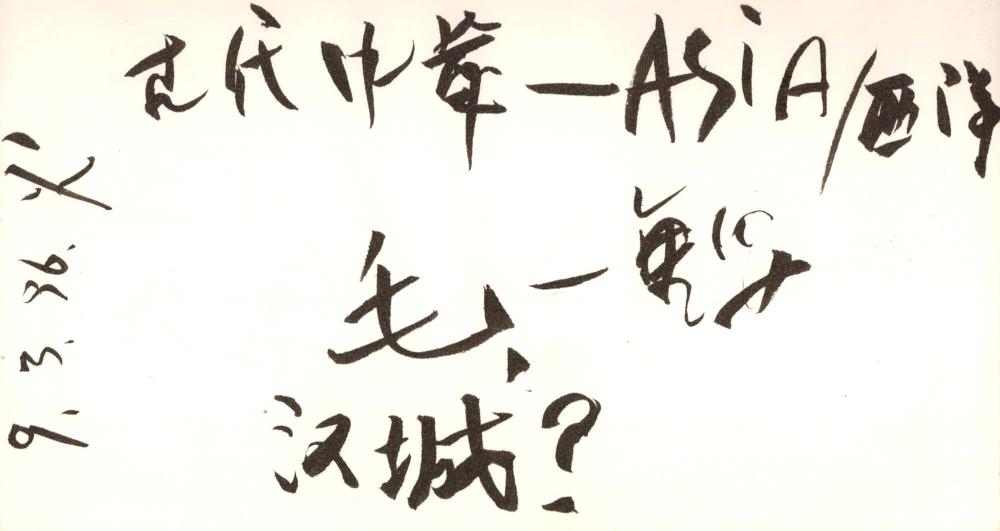 古代中華—ASIA/西洋
毛、—
汉城?
9.3.36.